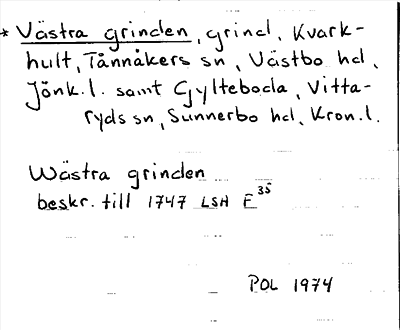 * Västra grinden, grind, Kvark-
hult, Tånnåkers sn, Västbo hd,
Jönk.l. samt Gylteboda, Vitta-
ryds sn, Sunnerbo hd, Kron.l.
Wästra grinden
beskr. till 1747 LSH E 35
POL 1974